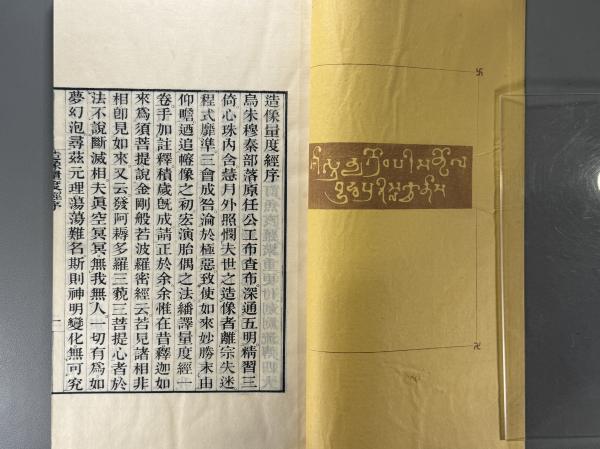 造像量度經序
烏朱穆秦部落原任公工布查布深通五明精習三
倚心珠內含慧月外照憫夫世之造像者離宗失迷
程式靡準三會成咎淪於極惡致使如來妙勝末由
仰瞻迺追像之初宏演胎偶之法繙譯量度經一
卷手加註釋積歲旣成請正於余余惟在昔釋迦如
來爲須菩提說金剛般若波羅密經云若見諸相非
相卽見如來又云發阿耨多羅三藐三菩提心者於
法不說斷滅相夫眞空冥冥無我無人一切有爲如
夢幻泡尋茲元理蕩蕩難名斯則神明變化無可究
造像量度經序
一